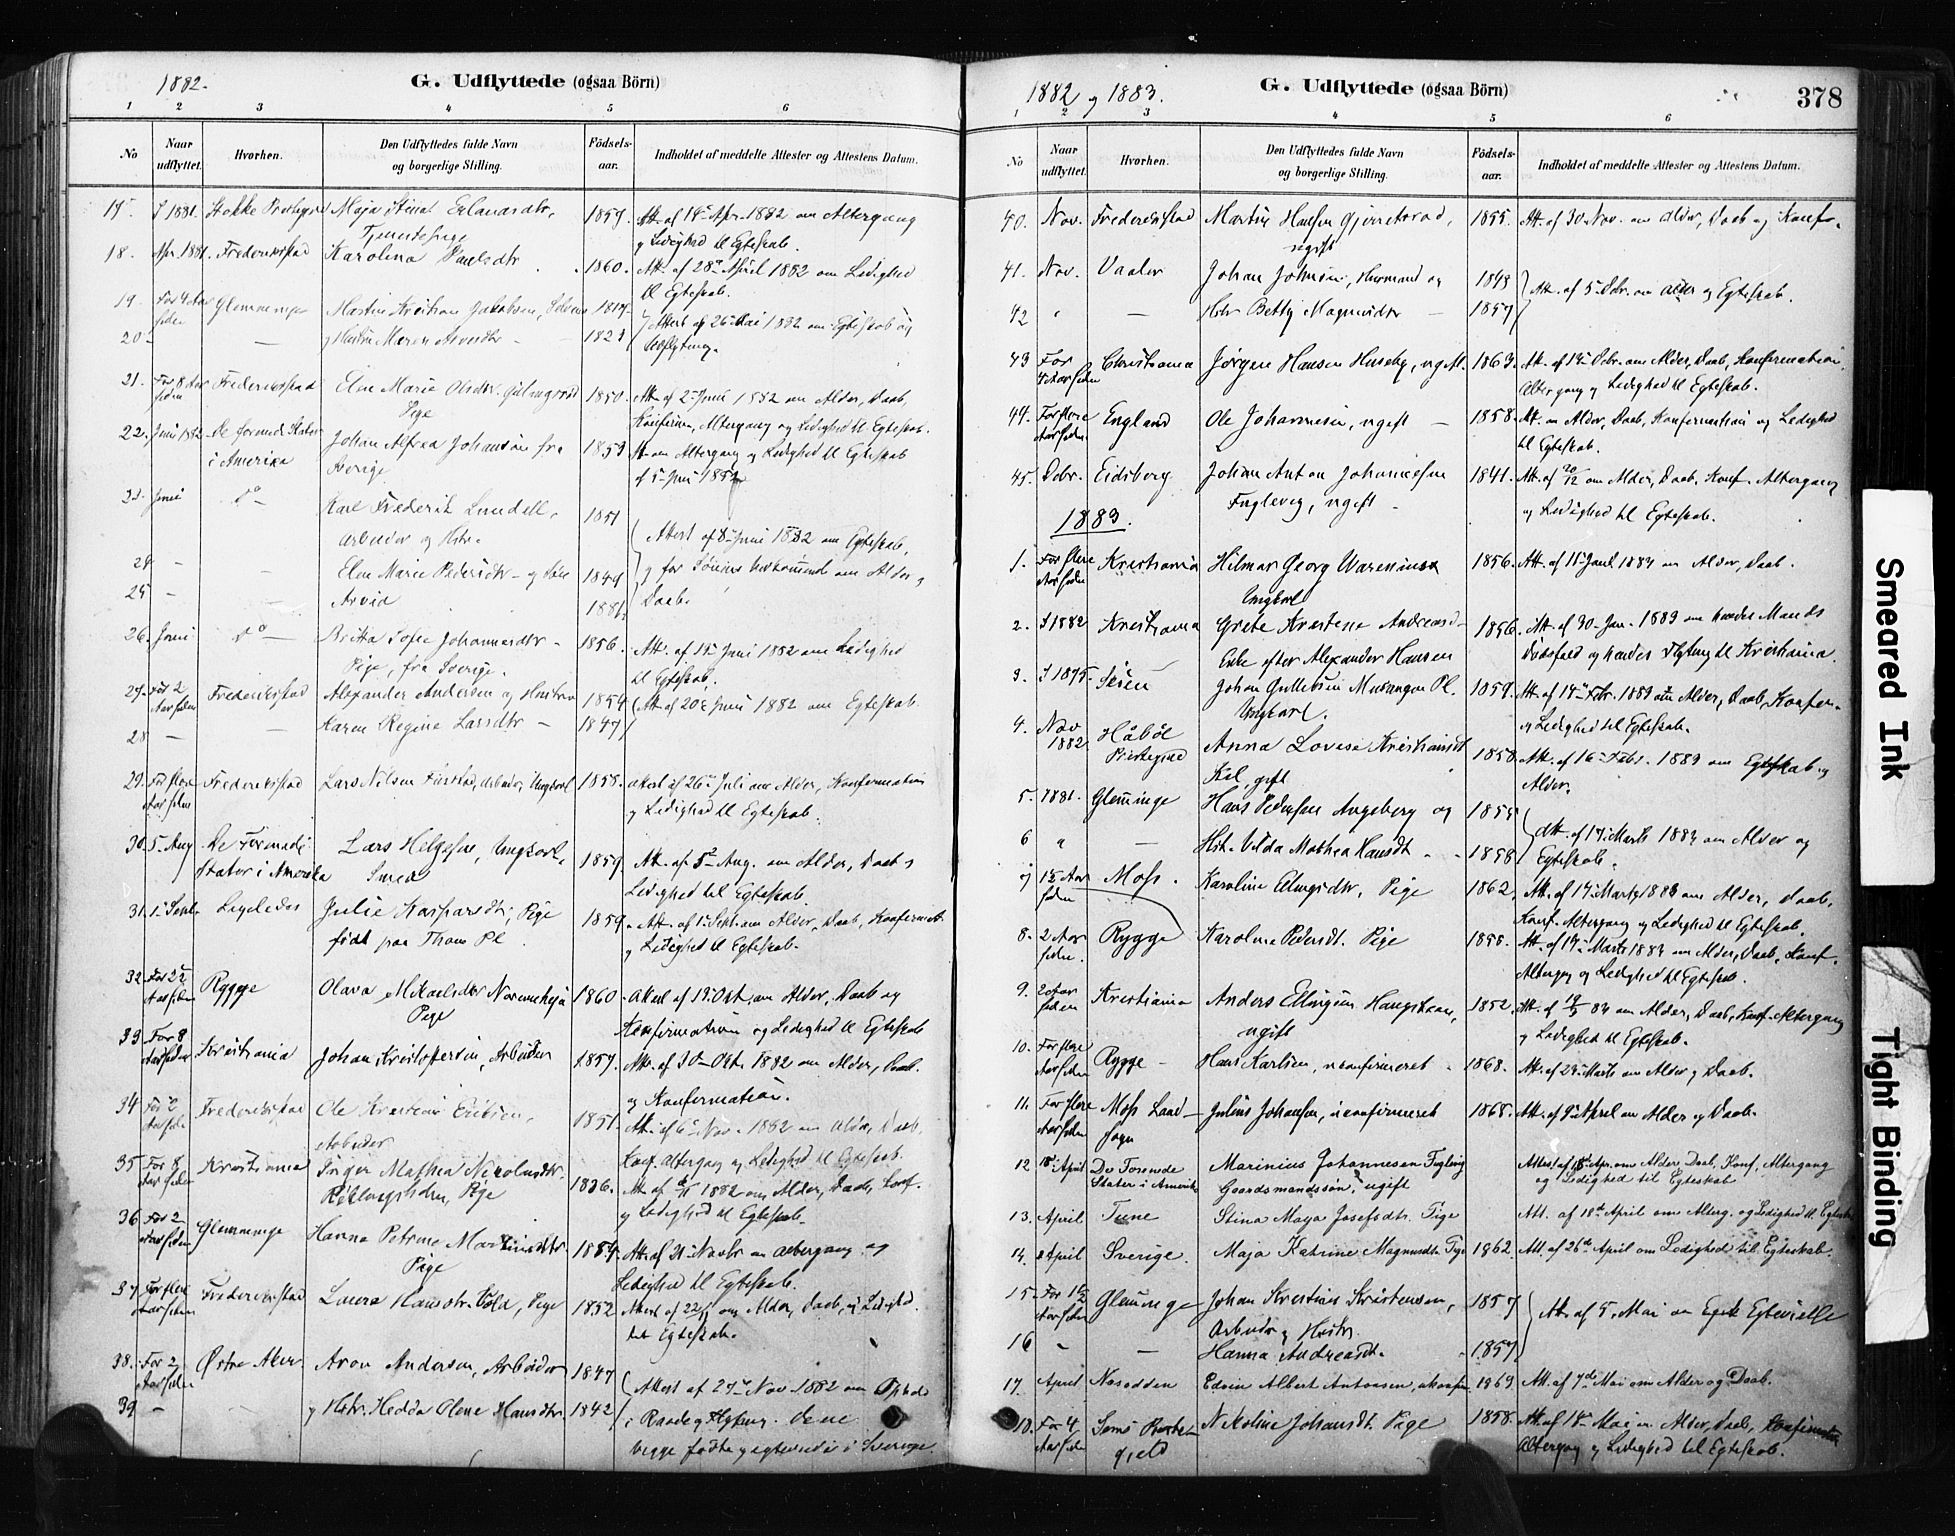 1882.
G. Udflyttede (ogsaa Börn)
1 2 3 4 5 6
No
Naar udflyttet.
Hvorhen.
Den Udflyttedes fulde Navn og borgerlige Stilling.
Födsels-aar.
Indholdet af meddelte Attester og Attestens Datum.
I 1881. Stokke Maja Stina 1859. Att. af 14 Apr. 1882 om Altergang
Tjenestepige og Ledighed til Egteskab.
18. Apr. 1881. Frederikstad Karolina Paulsdtr 1860. Att. af 28 April 1882 om Ledighed
til Egteskab.
19. For 4 Aar siden Glemminge Martin Kristian Jakobsen,
20. — og Hustru Maren 1823 Attest af 26 Mai 1882 om Egteskab og
Udflytning.
21. For 8 Aar siden Frederikstad Elen Marie Olsdtr. 1850. Att. af 2 Juni 1882 om Alder, Daab,
Pige Konfirm, Altergang og Ledighed til Egteskab.
22. Juni 1882 De forenede Stater i Amerika Johan Alfred Johansön fra Sverige 1853 Att om Altergang og Ledighed til Egteskab
af 5 Juni 1882
23. Juni do Karl Frederik Lundell, 1851
Arbeider og Hstr. Attest af 8 Juni 1882 om Egteskab,
24 - - Elen Marie Pedersdtr - og Sön 1849 og for Sönnens vedkommende om Alder og
25 - - Arvid 1881. Daab.
26. Juni do — Britta Sofie Johannesdtr - 1856. Att. af 15 Juni 1882 om Ledighed
Pige, fra Sverige. til Egteskab.
27. For 2 Aar siden Frederikstad Alexander Andersen og Hustru 1854 Att. af 20 Juni 1882 om Egteskab.
28 — - Karen Regine Larsdtr - 1847
29. For flere Aar siden Frederikstad Lars Nilsen Arbeider, Ungkarl 1858. Attest af 26 Juli om Alder, Konfirmation
og Ledighed til Egteskab.
30. 5. Aug De Forenede Stater i Amerika Lars Helgesen, Ungkarl, 1859. Att. af 5 Aug. om Alder, Daab og
Smed Ledighed til Egteskab.
31. 1. Sept. Julie Kasparsdtr, Pige 1859. Att. af 1 Sept. om Alder, Daab, Konfirmat.
född paa Thom Pl. og Ledighed til Egteskab.
32. For 2½ Aar siden Rygge Olava Mikaelsdtr 1860. Attest af 19 Okt. om Alder, Daab og
Pige Konfirmation og Ledighed til Egteskab
33 For 8 Aar siden Kristiania Johan Kristofersen, Arbeider 1857. Att. af 30 Okt. 1882 om Alder, Daab.
og Konfirmation.
34 For 2 Aar siden Frederikstad Ole Kristian Eriksen, 1851. Att. af 6 Nov. 1882 om Alder, Daab.
Arbeider Konf. Altergang og Ledighed til Egteskab.
35 For 8 Aar siden Kristiania Mathea Nikolaisdtr. 1836. Att. af 1882 om Alder, Daab, Konf.
Pige og Ledighed til Egteskab.
36 For 2 Aar siden Glemminge Hanna Petrine Martinsdtr. Att. af 21 Novbr om Altergang og
Pige Ledighed til Egteskab.
37 For flere Aar siden Frederikstad Laura Hansdtr. Pige 1852 Attest af 22/11 om Alder, Daab, og Ledighed
til Egteskab.
38. For 2 Aar siden Østre Aker Aron Andersen, Arbeider 1847 Attest af 27 Nov 1882 om Ophold
39 - - og Hstr. Hedda Olene Hansdtr. 1842 i Raade og Flytning. Dene
begge födte og egteviede i Sverige.
1882 og 1883.
G. Udflyttede (ogsaa Börn)
378
1 2 3 4 5 6
No
Naar udflyttet
Hvorhen.
Den Udflyttedes fulde Navn og borgerlige Stilling.
Födsels-aar.
Indholdet af meddelte Attester og Attestens Datum.
40. Nov. Frederikstad Martin Hansen 1855. Att. af 30 Nov. om Alder, Daab og Konf.
ugift
41. Nov. Vaaler Johan Johnsen, Husmand og 1843 Att. af 5 Dcbr. om Alder og Egteskab.
42 " — Hstr Betty Magnusdtr — 1857
43 For 4 Aar siden Christiania Jörgen Hansen Huseby, ugift. 1863. Att. af 19 Dcbr. om Alder, Daab, Konfirmation,
Altergang og Ledighed til Egteskab.
44. For flere Aar siden England Ole Johannesen, ugift — 1858. Att. om Alder, Daab, Konfirmation og Ledighed
til Egteskab.
45. Dcbr. Eidsberg Johan Anton Johannesen 1841. Att. af 20/12 om Alder, Daab, Konf. Altergang
Fuglevig, ugift - og Ledighed til Egteskab.
1883.
1. For flere Aar siden Kristiania Hilmar Georg 1856. Att. af 15 Janl 1883 om Alder, Daab.
Ungkarl
2. I 1882 Kristiania Grete Kirstene Andreasd- 1856. Att. af 30 Jan. 1883 om hendes Mands
Enke efter Alexander Hansen Dödsfald og hendes Flytning til Kristiania.
3. I 1875 Skien Johan Gullebsen Pl. 1859. Att. af 14 Febr. 1883 om Alder, Daab, Konfir-
Ungkarl. og Ledighed til Egteskab.
4. Nov 1882 Håböl Præstegjeld Anna Lovise Kristiansdt 1858. Att. af 16 Febr. 1883 om Egteskab og
gift Alder.
5. 1881. Glemminge Hans Pedersen Augeberg og 1855 Att. af 17 Marts 1883 om Alder og
6 " — Hst. Vilda Mathea Hansdt. 1858 Egteskab.
Aar siden Moss. Karoline Pige 1862. Att. af 17 Marts 1883 om Alder, Daab,
Konf. Altergang og Ledighed til Egteskab.
8. 2 Aar siden. Rygge Karoline Pedersdt. Pige 1858. Att. af 17 Marts 1883 om Alder, Daab, Konf.
Altergang og Ledighed til Egteskab.
9. Aar siden Kristiania Anders Ellingsen 1852. Att. af om Alder, Daab, Konf. Altergang
ugift og Ledighed til Egteskab.
10. For flere Aar siden Rygge - Hans Karlsen, ukonfirmeret 1868. Att. af 29 Marts om Alder og Daab.
11. For flere Aar siden Moss Land-sogn Julius Johansen, ukonfirmeret 1868. Att. af 9 April om Alder og Daab.
12 18 April De Forenede Stater i Amerika Marinius Johannesen Fuglevig Attest af 18 Apr. om Alder, Daab, Konf., Altergang
Gaardmandssön, ugift og Ledighed til Egteskab
13. April Tune Stina Maja Josefsdtr. Pige Att. af 18de April om Alterg. og Ledighed til Egteskab
14. April Sverige. Maja Katrine Magnusdt. Pige 1862 Att. af 26de April om Ledighed til Egteskab.
15. For 1½ Aar siden Glemminge Johan Kristian Kristensen, 1857 Att. af 5. Mai om Egteskab
Arbeider og Hustr.
16 " — Hanna Andreasdt. 1857
17. April Nesodden Edvin Albert Antonsen, ukonfirm 1869 Att. af 7de Mai om Alder og Daab.
18. For 4 Aar siden Sems Præste-gjeld Nikoline Johansdt. Pige 1858. Att. af 18 Mai om Alder, Daab, Konfirmation
Altergang og Ledighed til Egteskab.
Smeared Ink
Tight Binding